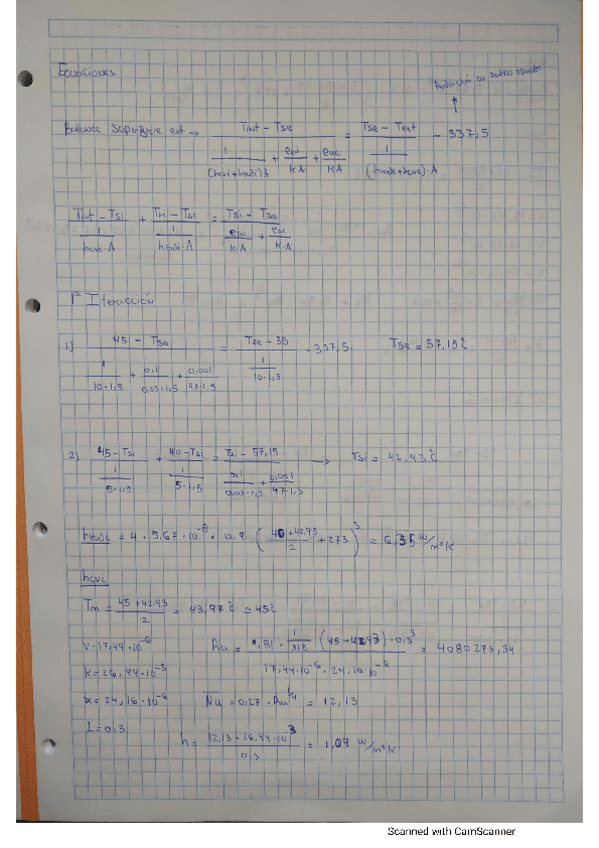 Ecuaciones
Radiación
Balance superficie ext → (Tint - Tse) / (1/((hcvi+hradi)A) + ew/(K·A) + eac/(K·A)) = (Tse - Text) / (1/((hrade+hcve)·A)) - 337,5
(Tint - Tsi) / (1/(hcvi·A)) + (Tri - Tsi) / (1/(hradi·A)) = (Tsi - Tse) / (ew/(K·A) + eac/(K·A))
1ª Iteracción
1) (45 - Tse) / (1/(10·1,5) + 0,1/(0,03·1,5) + 0,001/(47·1,5)) = (Tse - 35) / (1/(10·1,5)) - 337,5 Tse = 57,15℃
2) (45 - Tsi) / (1/(5·1,5)) + (40 - Tsi) / (1/(5·1,5)) = (Tsi - 57,15) / (0,1/(0,03·1,5) + 0,001/(47·1,5)) → Tsi = 42,93℃
hradi = 4 · 5,67·10⁻⁸ · 0,9 ((40+42,93)/2 + 273)³ = 6,35 W/m²K
hcvi
Tm = (45+42,93)/2 = 43,97℃ ≃ 45℃
V = 17,44·10⁻⁶ Ra = (9,81 · 1/318 (45 - 42,93) · 0,3³) / (17,44·10⁻⁶ · 24,16·10⁻⁶) = 4080273,34
k = 26,94·10⁻³
α = 24,16·10⁻⁶ Nu = 0,27 · Ra^1/4 = 12,13
L = 0,3 h = (12,13 · 26,94·10⁻³) / 0,3 = 1,09 W/m²K
Scanned with CamScanner